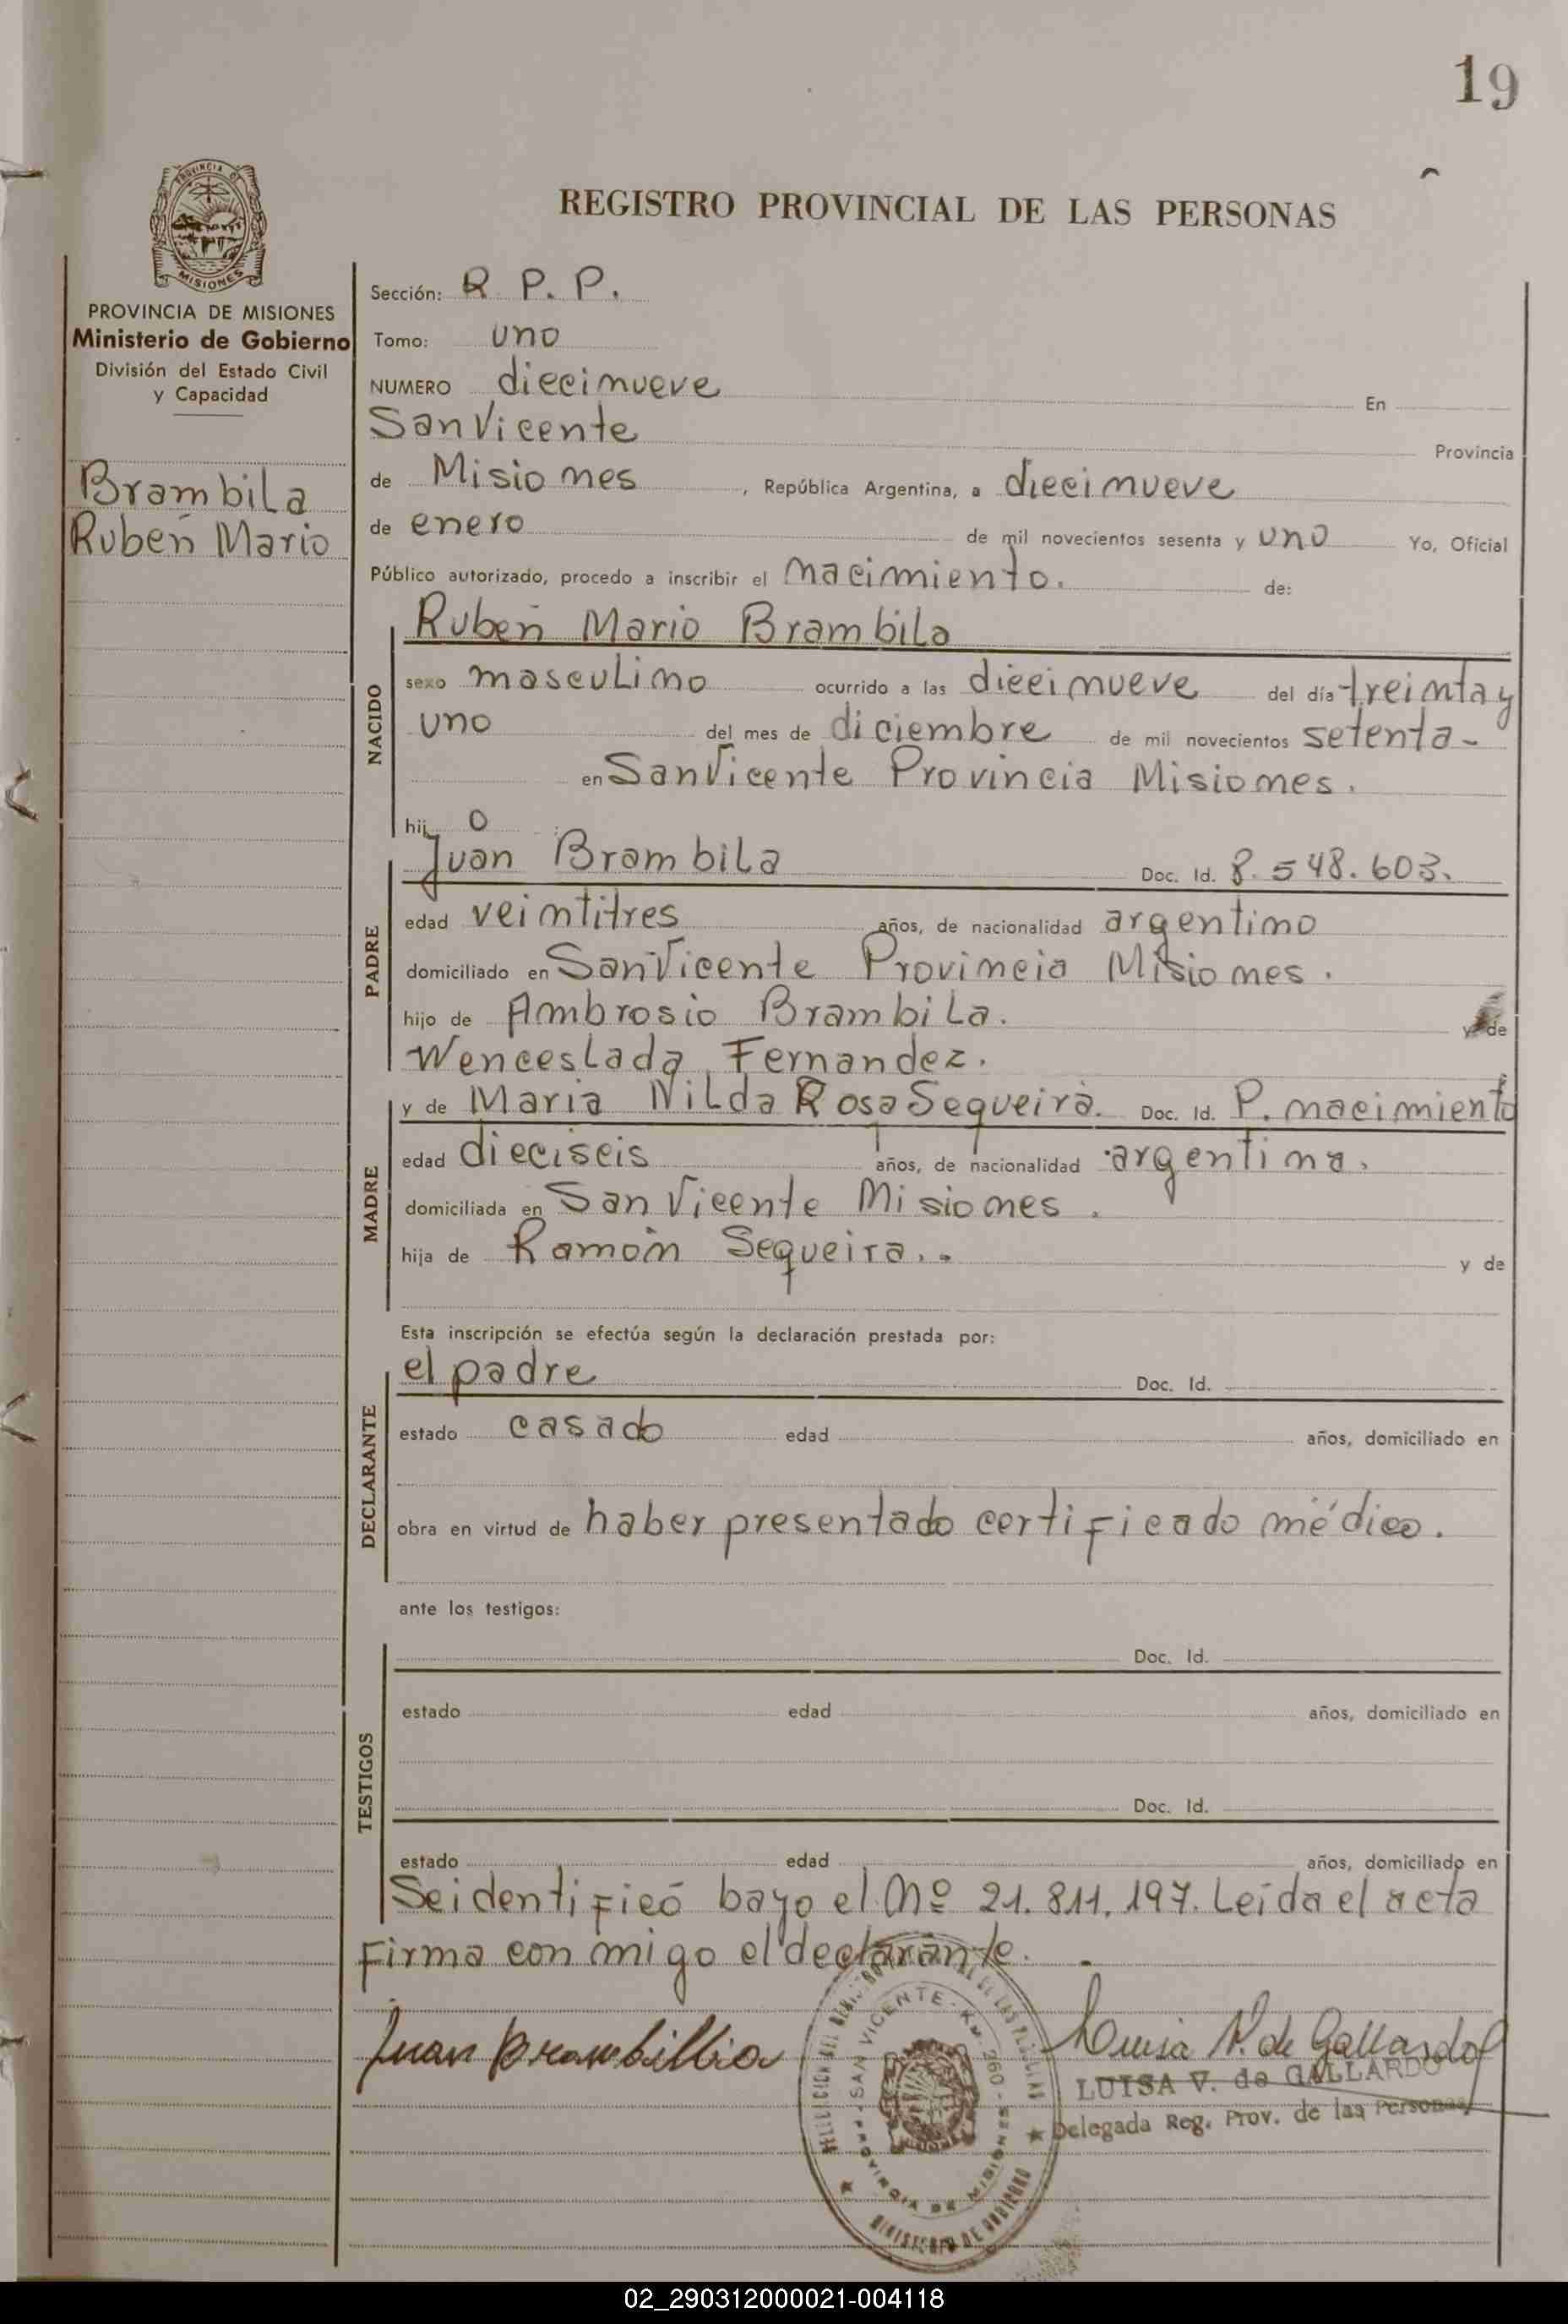 19
REGISTRO PROVINCIAL DE LAS PERSONAS
PROVINCIA DE MISIONES
PROVINCIA DE MISIONES
Ministerio de Gobierno
División del Estado Civil
y Capacidad
Brambila
Rubén Mario
Sección: R P. P.
Tomo: uno
NUMERO diecinueve En
San Vicente Provincia
de Misiones, República Argentina, a diecinueve
de enero de mil novecientos sesenta y uno Yo, Oficial
Público autorizado, procedo a inscribir el nacimiento. de:
NACIDO
Rubén Mario Brambila
sexo masculino ocurrido a las diecinueve del día treinta y
uno del mes de diciembre de mil novecientos setenta-
en San Vicente Provincia Misiones.
hij o
PADRE
Juan Brambila Doc. Id. 8.548.603.
edad veintitres años, de nacionalidad argentino
domiciliado en San Vicente Provincia Misiones.
hijo de Ambrosio Brambila. y de
Wenceslada Fernandez.
MADRE
y de Maria Nilda Rosa Sequeira. Doc. Id. P. nacimiento
edad dieciseis años, de nacionalidad argentina.
domiciliada en San Vicente Misiones.
hija de Ramón Sequeira.. y de
Esta inscripción se efectúa según la declaración prestada por:
DECLARANTE
el padre Doc. Id.
estado casado edad años, domiciliado en
obra en virtud de haber presentado certificado médico.
ante los testigos:
TESTIGOS
Doc. Id.
estado edad años, domiciliado en
Doc. Id.
estado edad años, domiciliado en
Se identificó bayo el Nº 21.811.197. Leída el acta
firma con migo el declarante.
Juan Brambillia
Luisa V. de Gallardo
LUISA V. de GALLARDO
Delegada Reg. Prov. de las Personas
SAN VICENTE - KM 260 - MISIONES
PROVINCIA DE MISIONES
MINISTERIO DE GOBIERNO
02_290312000021-004118